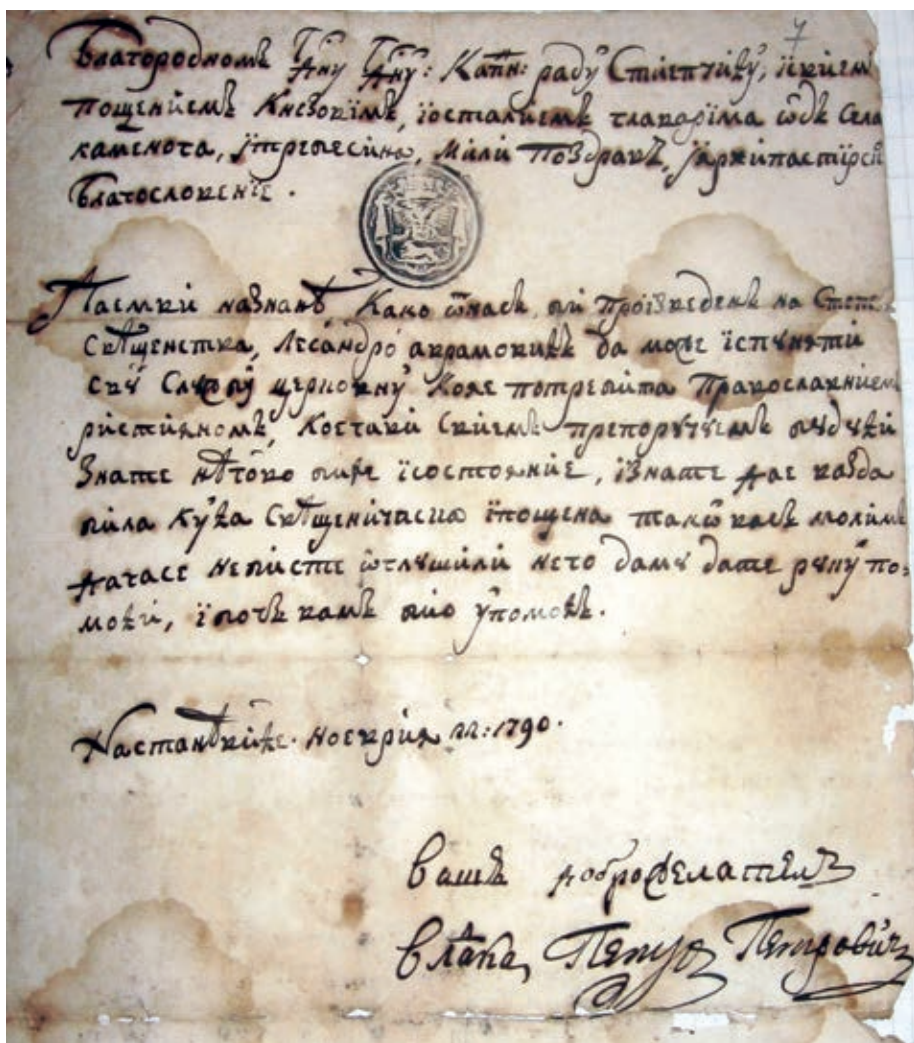 7
Благородномъ Гдну Гдну: Капн: раду Стиепчиву, ївкием
пощениемъ Кнезовїмъ, їосталиемъ главарїма ѿдъ Села
каменога, їтребесина, Мили Поздравъ, їархипастирск
Благословение.
даемви назнанѣ, Како ѿнасъ би произведенъ на Степе
Свѣщенства, Лесандро аврамовивъ да може їспуняти
сву Службу церковну Кояе потребита Православнием
ристияномъ, Костави Свиемъ препоручуемъ будући
Знате нѣгово биће їсостояние, їзнате дае вазда
била Кућа Свѣщеничаска їпощена такѡ васъ молимъ
дагасе небисте ѿтлушили него дамy дате руку по-
моћи, їбогъ вамъ био ỳпомоћъ.
Настанѣвиће. ноеврия 22: 1790.
Вашъ доброжелателъ
Влдка, Петръ Петровичъ